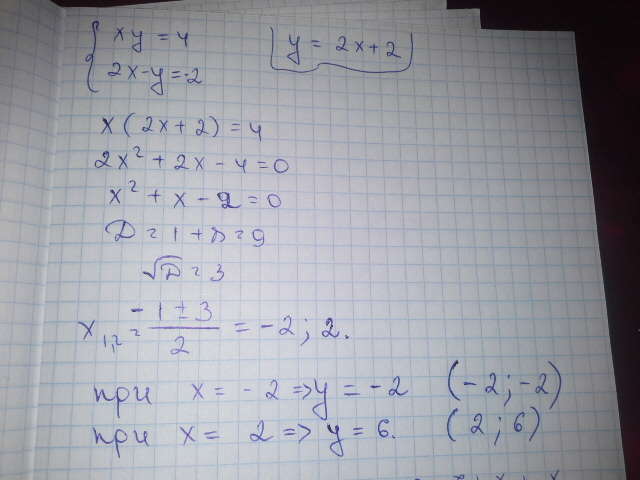 xy = 4
2x-y=-2
y = 2x+2
x(2x+2)=4
2x²+2x-4=0
x²+x-2=0
D=1+8=9
√D=3
x₁,₂=(-1±3)/2 = -2; 2.
при x = -2 => y = -2 (-2;-2)
при x = 2 => y = 6. (2;6)